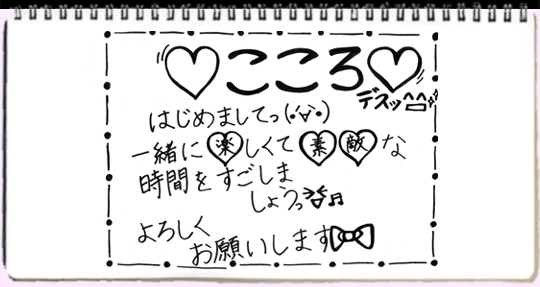 ♡こころ♡
デスッ^^
はじめましてっ(•'෴'•)
一緒に楽しくて素敵な
時間をすごしま
しょうっ♫
よろしく
お願いします